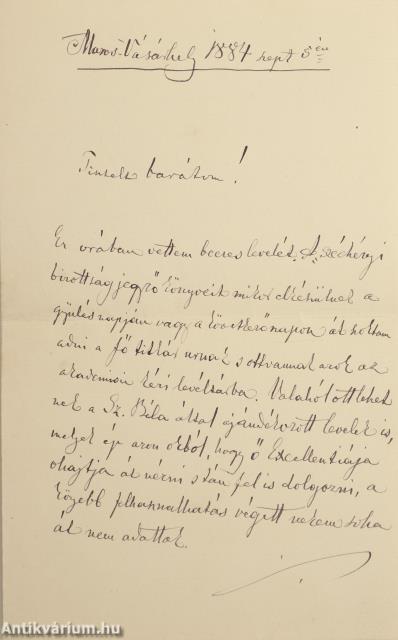 Maros-Vásárhely 1884 sept 5 én
Tisztelt barátom!
Ez órában vettem becses levelét. A Széchényi
bizottság jegyzőkönyveit mikor elkészülnek a
gyűlés napján vagy a következő napon át szoktam
adni a főtitkár urnak s ott vannak azok az
akadémiai kézi levéltárba. Valahol ott lehet
nek a Sz. Béla által ajándékozott levelek is,
melyek ép azon okból, hogy ő Excellentiája
ohajtja át nézni s tán fel is dolgozni, a
közebb felhasznalhatás végett nekem soha
át nem adattak.
Antikvárium.hu